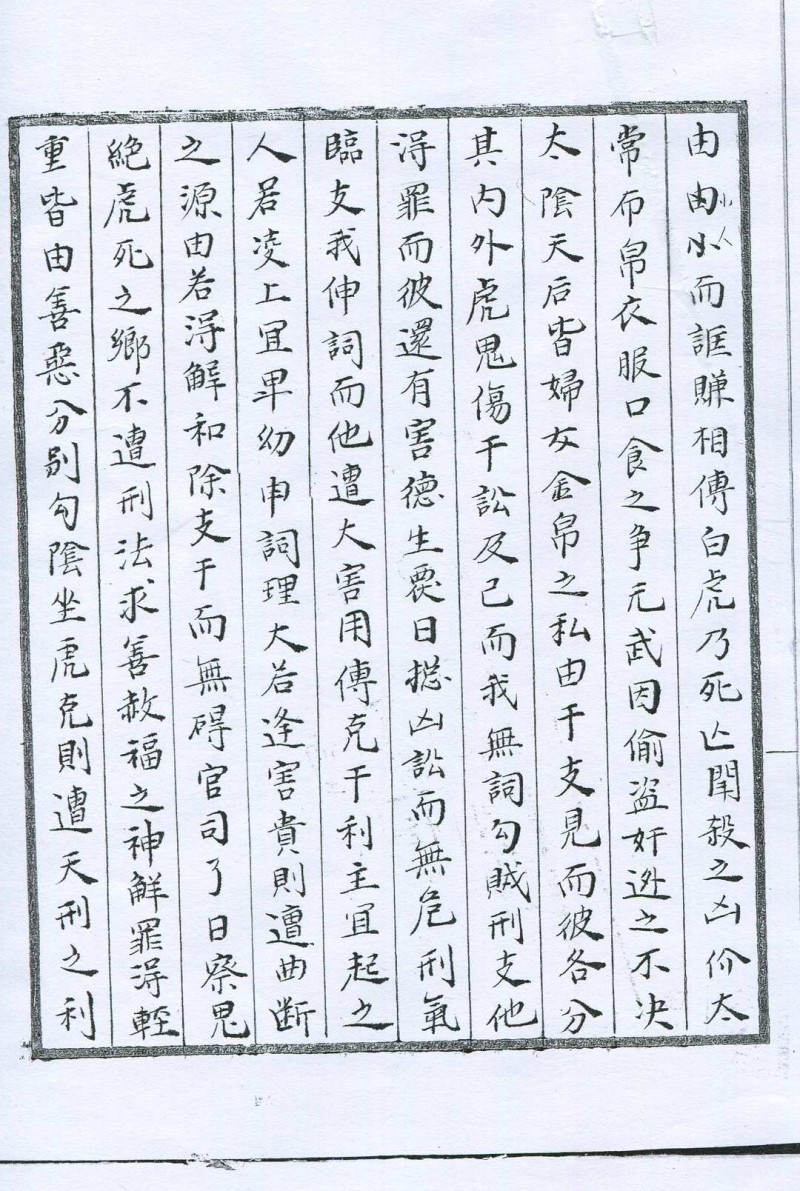 由由小人而誆賺相傳白虎乃死亡鬪殺之凶价太
常布帛衣服口食之争元武因偷盗奸迯之不决
太陰天后皆婦女金帛之私由干支見而彼各分
其内外虎鬼傷干訟及己而我無詞勾賊刑支他
淂罪而彼還有害德生覄日揔凶訟而無危刑氣
臨支我伸詞而他遭大害用傳克干利主宜起之
人若凌上宜卑幼申詞理大若逢害貴則遭曲断
之源由若淂解和除支干而無碍官司了日察鬼
絶虎死之鄉不遭刑法求善赦福之神解罪淂輕
重皆由善惡分别勾陰坐虎克則遭天刑之利